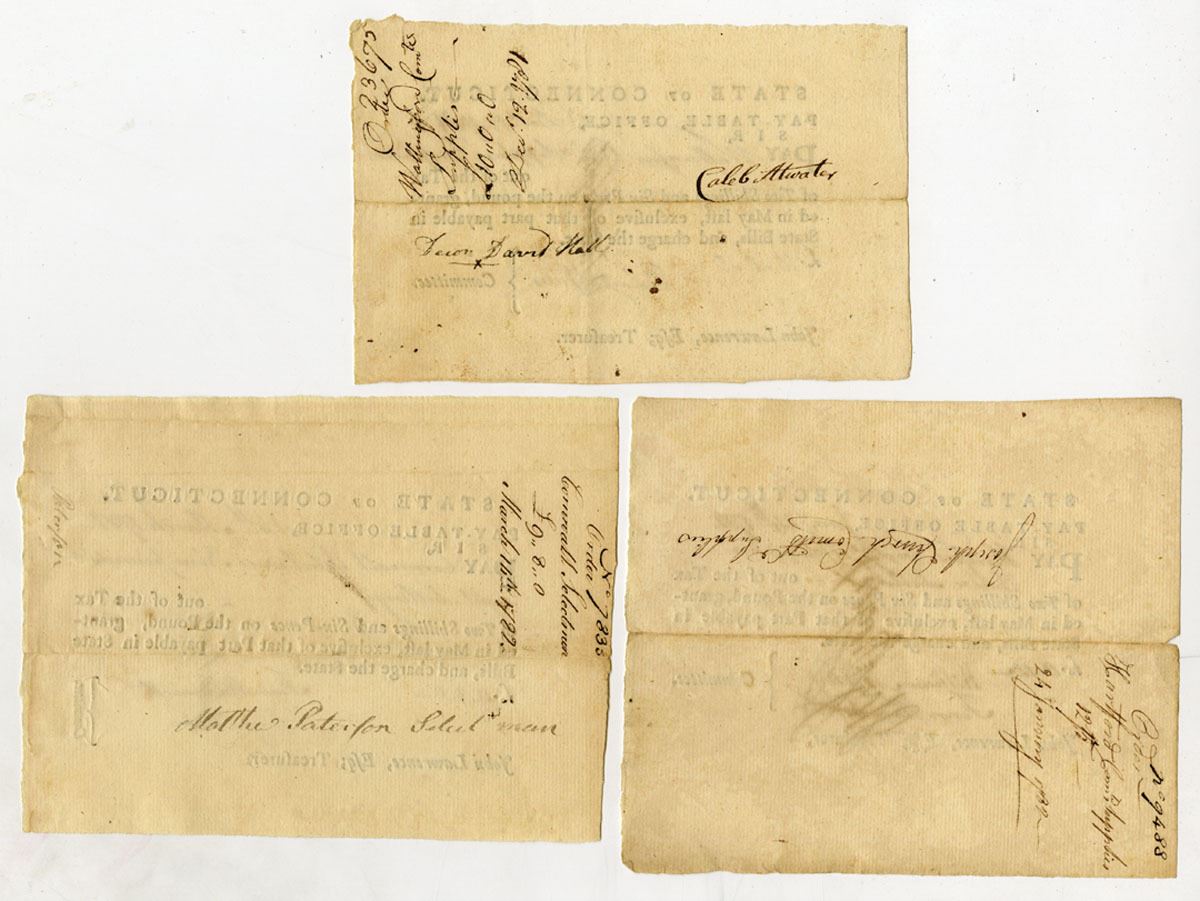 Order 23675
Wallingford Comte
Supplies
£10 „ 0 „ 0
Decr. 12. 1781
Caleb Atwater
Deacon David Hall
STATE OF CONNECTICUT.
PAY-TABLE OFFICE,
SIR,
PAY
out of the Tax
of Two Shillings and Six Pence on the pound, grant-
ed in May last, exclusive of that part payable in
State Bills, and charge the State.
Committee.
John Lawrence, Esq; Treasurer.
Order No 7833
Cornwall Selectmen
£9 „ 8 „ 0
March 16th 1782
Mathw Paterson Select man
STATE OF CONNECTICUT.
PAY-TABLE OFFICE,
SIR,
PAY
out of the Tax
of Two Shillings and Six Pence on the Pound, grant-
ed in May last, exclusive of that Part payable in State
Bills, and charge the State.
John Lawrence, Esq; Treasurer.
Joseph Church Comtte Supplies
Order No 9488
Hartford Comtte Supplies
24 January 1782
STATE OF CONNECTICUT.
PAY-TABLE OFFICE,
PAY
out of the Tax
of Two Shillings and Six Pence on the Pound, grant-
ed in May last, exclusive of that Part payable in
State Bills, and charge the State.
Committee.
John Lawrence, Esq; Treasurer,